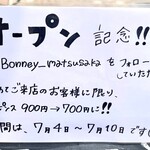 オープン 記念!!
Bonney_matsusaka を フォロー
していただ
めてご来店のお客様に限り、
ピス 900円→700円に!!
間は、7月4日〜7月10日です